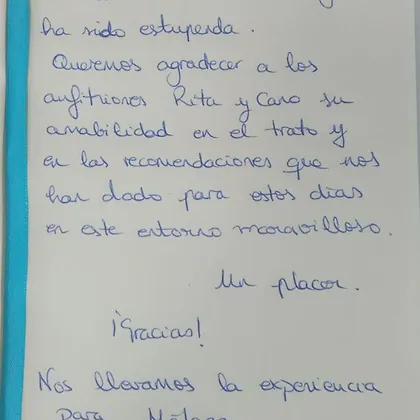 ha sido estupenda.
Queremos agradecer a los
anfitriones Rita y Cano su
amabilidad en el trato y
en las recomendaciones que nos
han dado para estos días
en este entorno maravilloso.
Un placer.
¡Gracias!
Nos llevamos la experiencia
para Málaga